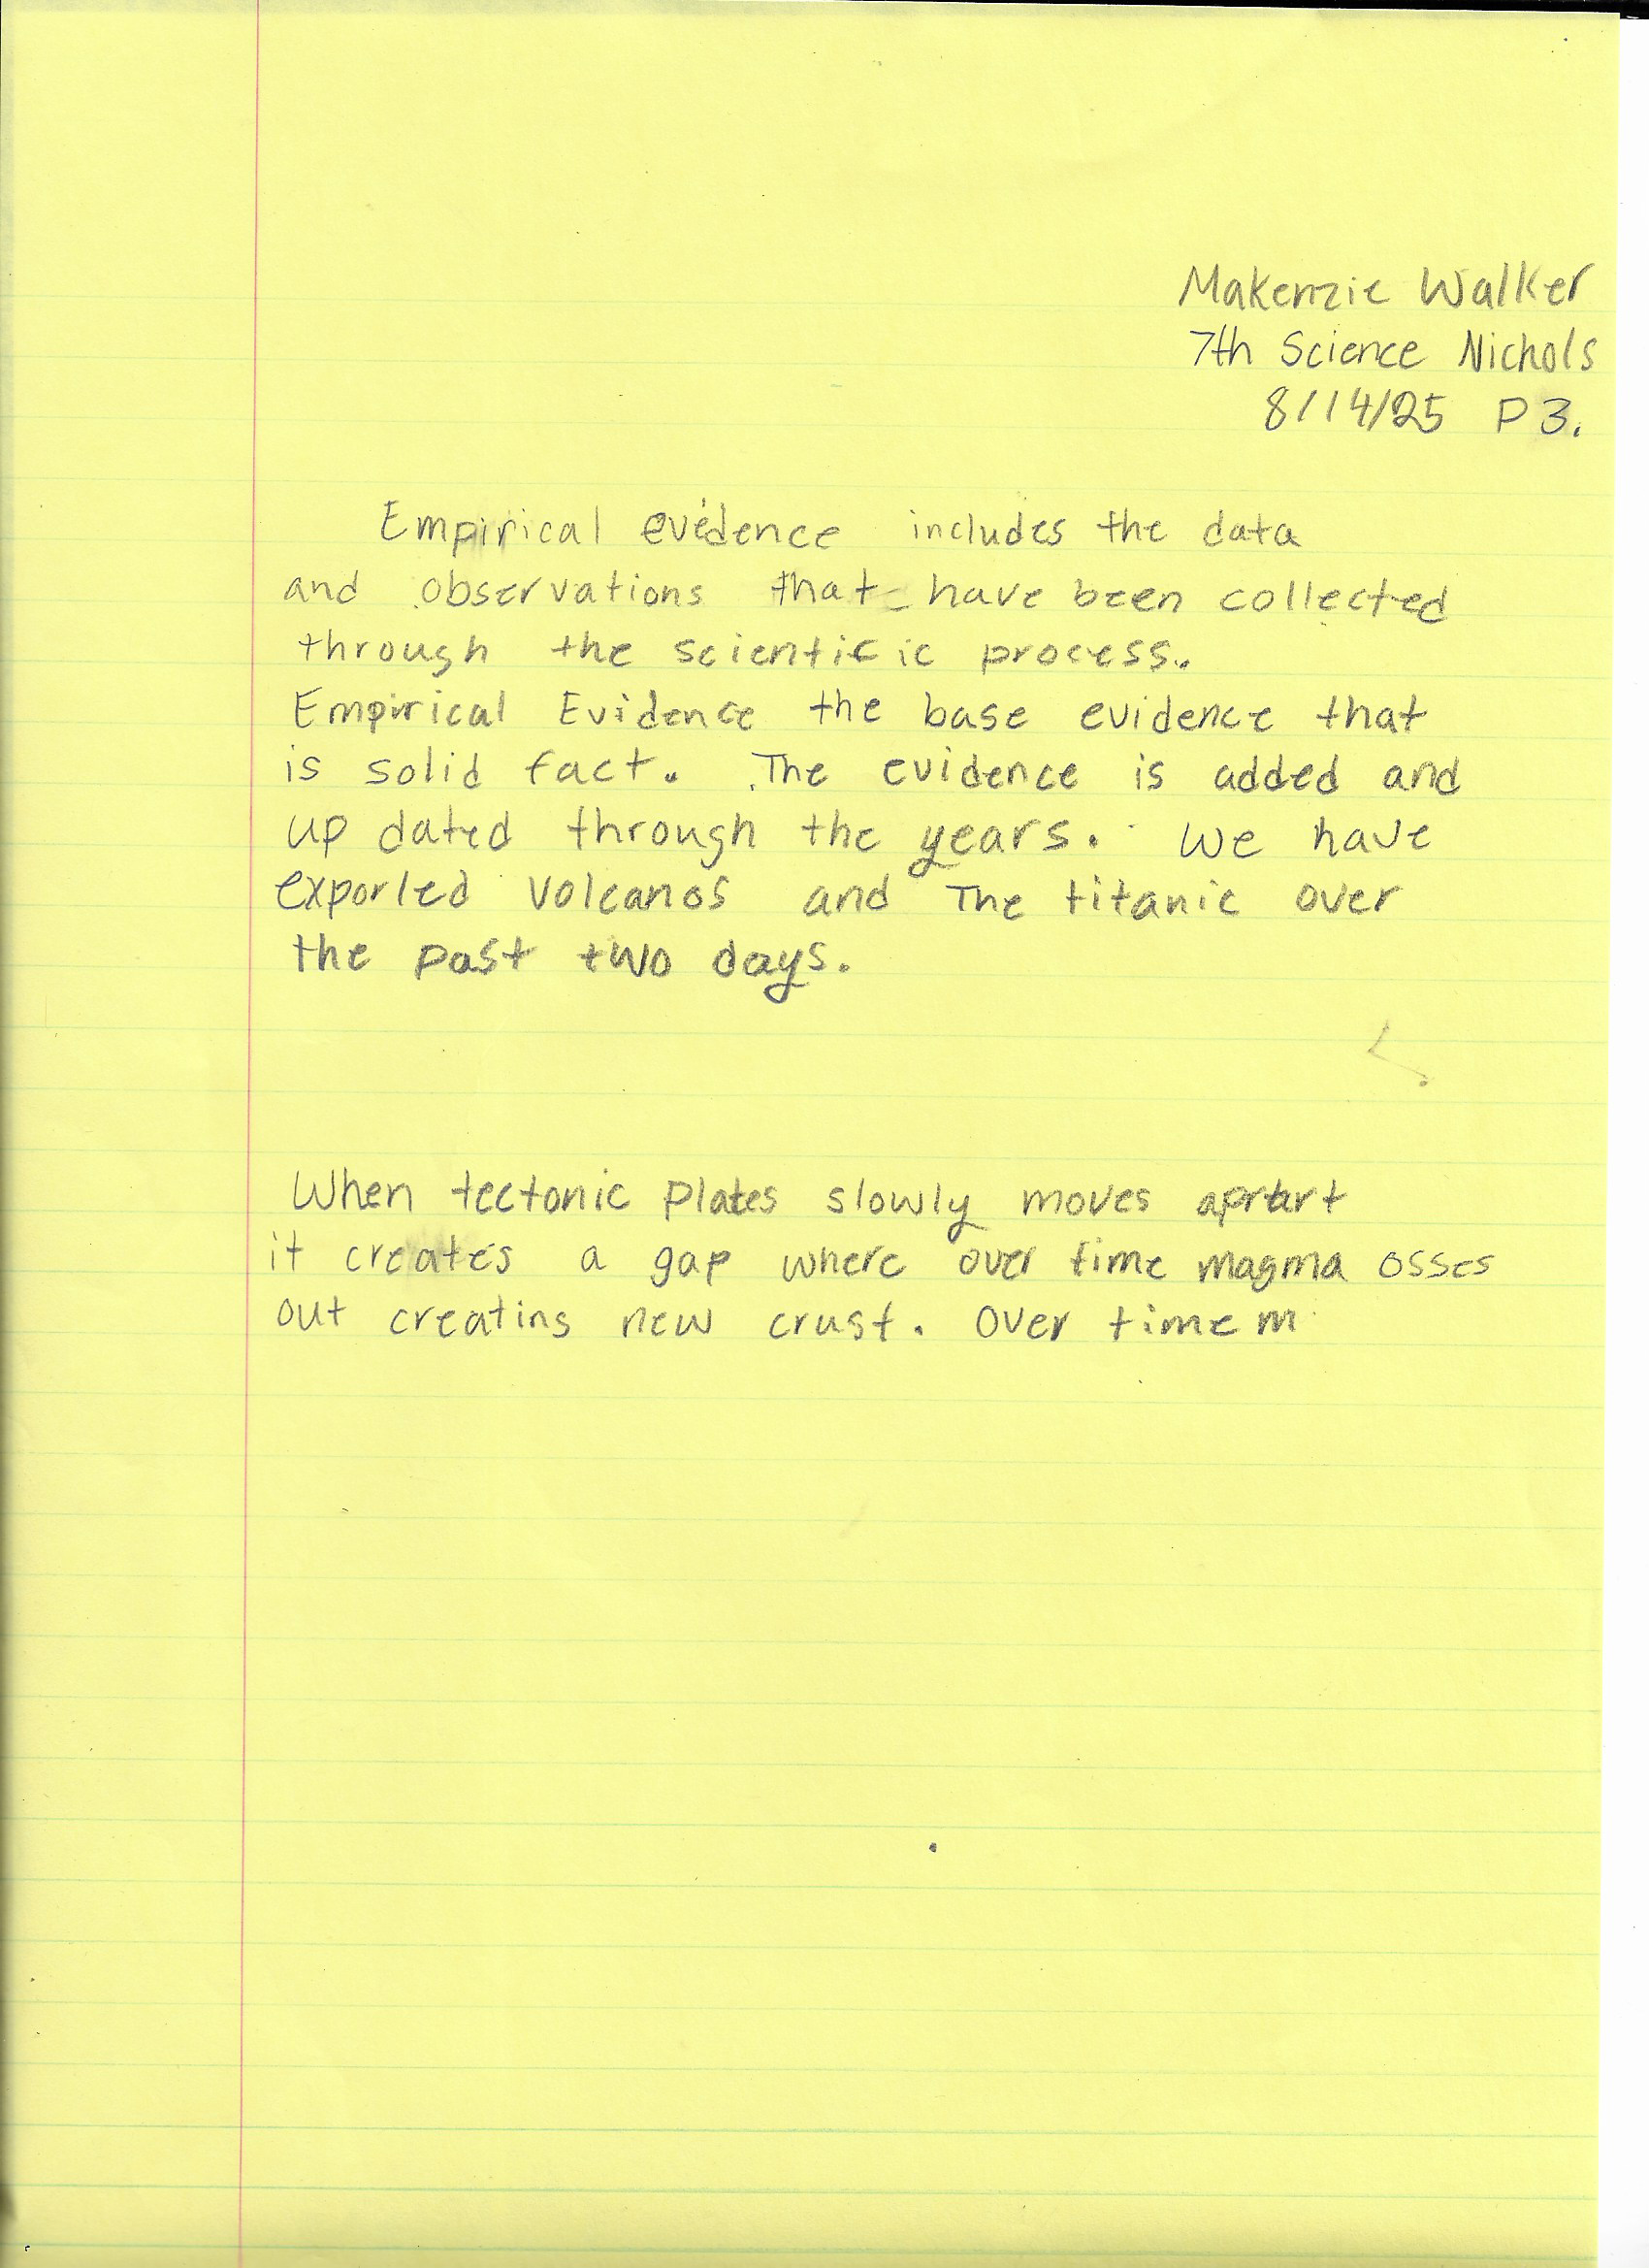 Makenzie Walker
7th Science Nichols
8/14/25 P 3.
Empirical evidence includes the data
and observations that have been collected
through the scientific process.
Empirical Evidence the base evidence that
is solid fact. The evidence is added and
up dated through the years. We have
exporled volcanos and The titanic over
the past two days.
When tectonic plates slowly moves aprart
it creates a gap where over time magma osses
out creating new crust. Over time m